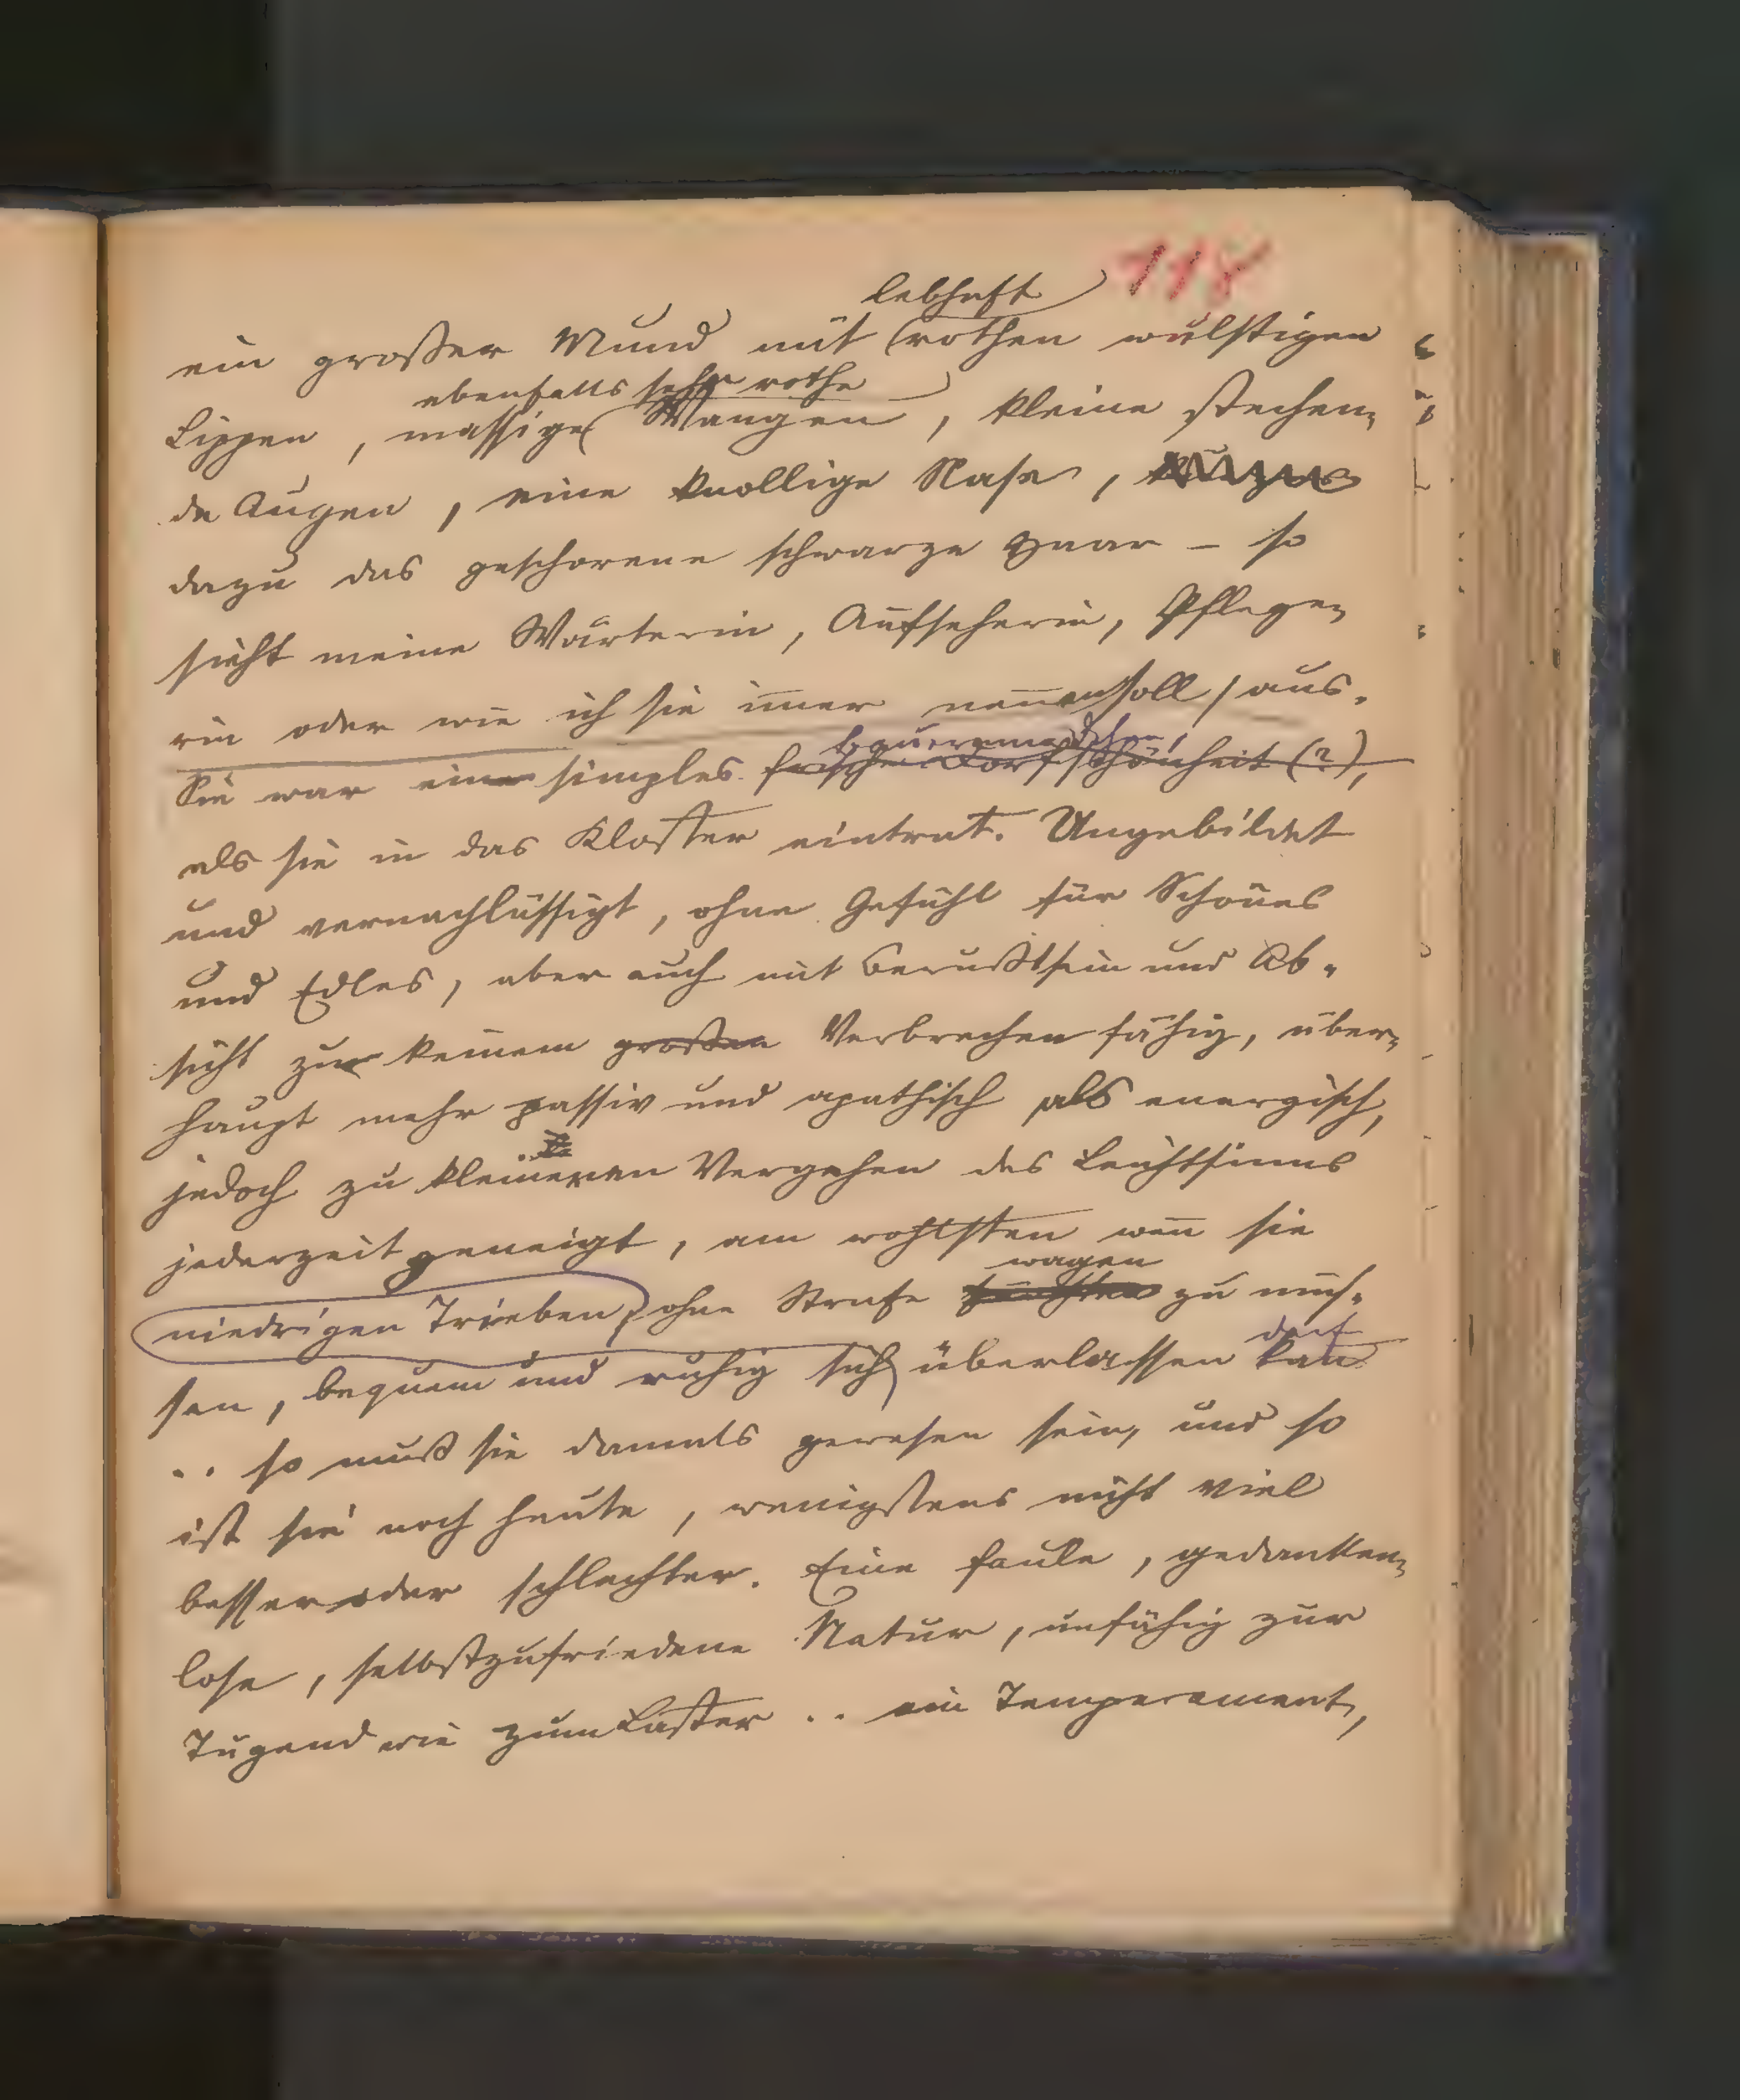 118
lebhaft
ein großer Mund mit rothen wulstigen
ebenfalls sehr rothe
Lippen, massige Wangen, kleine stechen-
de Augen, eine knollige Nase,
dazu das geschorene schwarze Haar – so
sieht meine Wärterin, Aufseherin, Pflege-
rin oder wie ich sie im̄er nen̄en soll, aus.
Bauernmädchen,
Sie war eine simples frische Dorfschönheit (?),
als sie in das Kloster eintrat. Ungebildet
und vernachlässigt, ohne Gefühl für Schönes
und Edles, aber auch mit Bewußtsein und Ab-
sicht zu keinem großen Verbrechen fähig, über-
haupt mehr passiv und apathisch als energisch,
jedoch zu kleineren Vergehen des Leichtsinns
jederzeit geneigt, am wohlsten wen̄ sie
wagen
niedrigen Trieben, ohne Strafe fürchten zu müs-
darf
sen, bequem und ruhig sich überlassen kan̄
.. so muß sie damals gewesen sein, und so
ist sie noch heute, wenigstens nicht viel
besser oder schlechter. Eine faule, gedanken-
lose, selbstzufriedene Natur, unfähig zur
Tugend wie zum Laster .. ein Temperament,